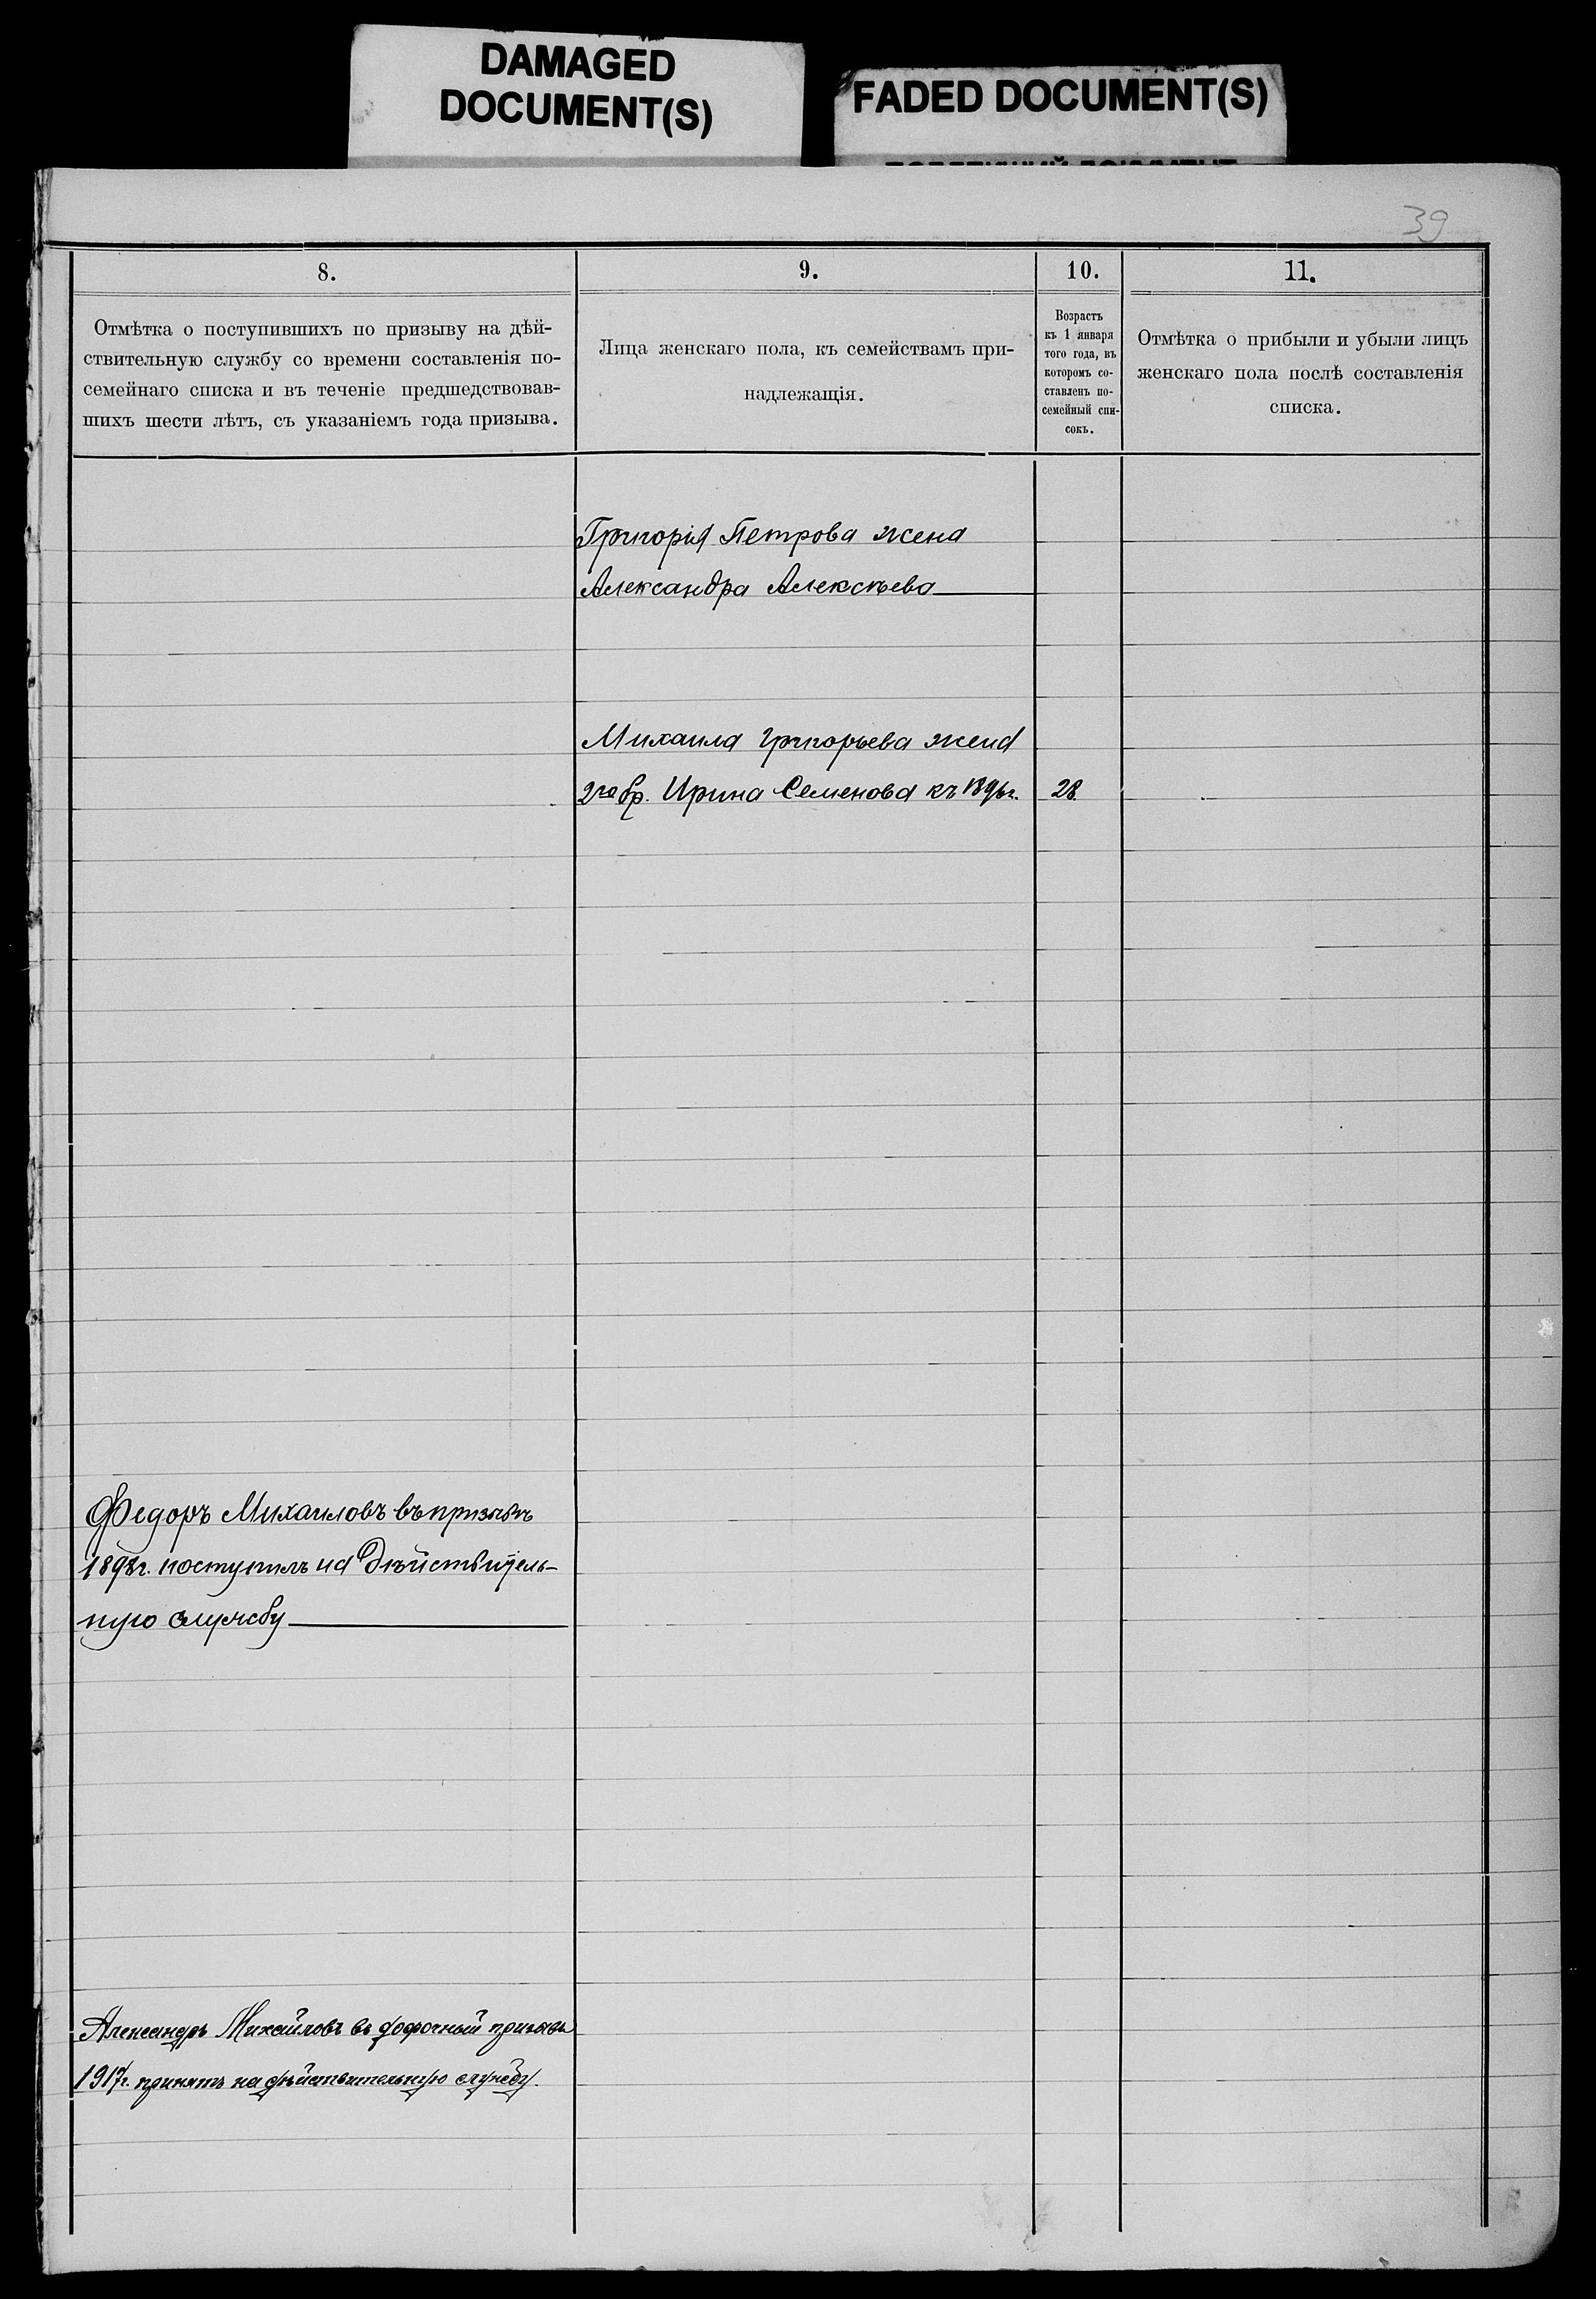 DAMAGED
DOCUMENT(S)
FADED DOCUMENT(S)
39
8.
Отмѣтка о поступившихъ по призыву на дѣй-
ствительную службу со времени составленія по-
семейнаго списка и въ теченіе предшедствовав-
шихъ шести лѣтъ, съ указаніемъ года призыва.
9.
Лица женскаго пола, къ семействамъ при-
надлежащія.
10.
Возрастъ
къ 1 января
того года, въ
которомъ со-
ставленъ по-
семейный спи-
сокъ.
11.
Отмѣтка о прибыли и убыли лицъ
женскаго пола послѣ составленія
списка.
Григорія Петрова жена
Александра Алексѣева
Михаила Григорьева жена
2го бр. Ирина Семенова къ 1896г. 28.
Федоръ Михаиловъ въ призывъ
1898г. поступилъ на дѣйствитель-
ную службу
Александръ Михайловъ въ досрочный призывъ
1917г. принятъ на дѣйствительную службу.